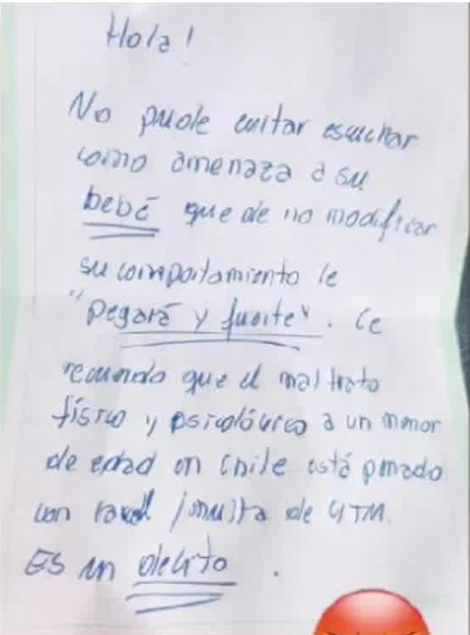 Hola!
No pude evitar escuchar
como amenaza a su
bebé que de no modificar
su comportamiento le
"pegará y fuerte". Le
recuerdo que el maltrato
físico y psicológico a un menor
de edad en Chile está penado
con carcel / multa de UTM.
ES un delito.